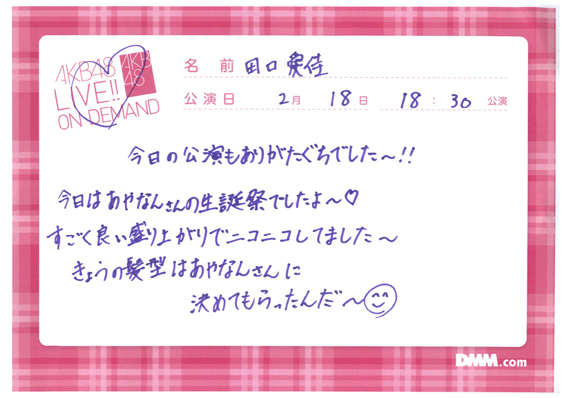 AKB48
LIVE!!
ON DEMAND
AKB
48
名前 田口愛佳
公演日 2月 18日 18:30 公演
今日の公演もありがたぐちでした〜!!
今日はあやなんさんの生誕祭でしたよ〜♡
すごく良い盛り上がりでニコニコしてました〜
きょうの髪型はあやなんさんに
決めてもらったんだ〜
DMM.com